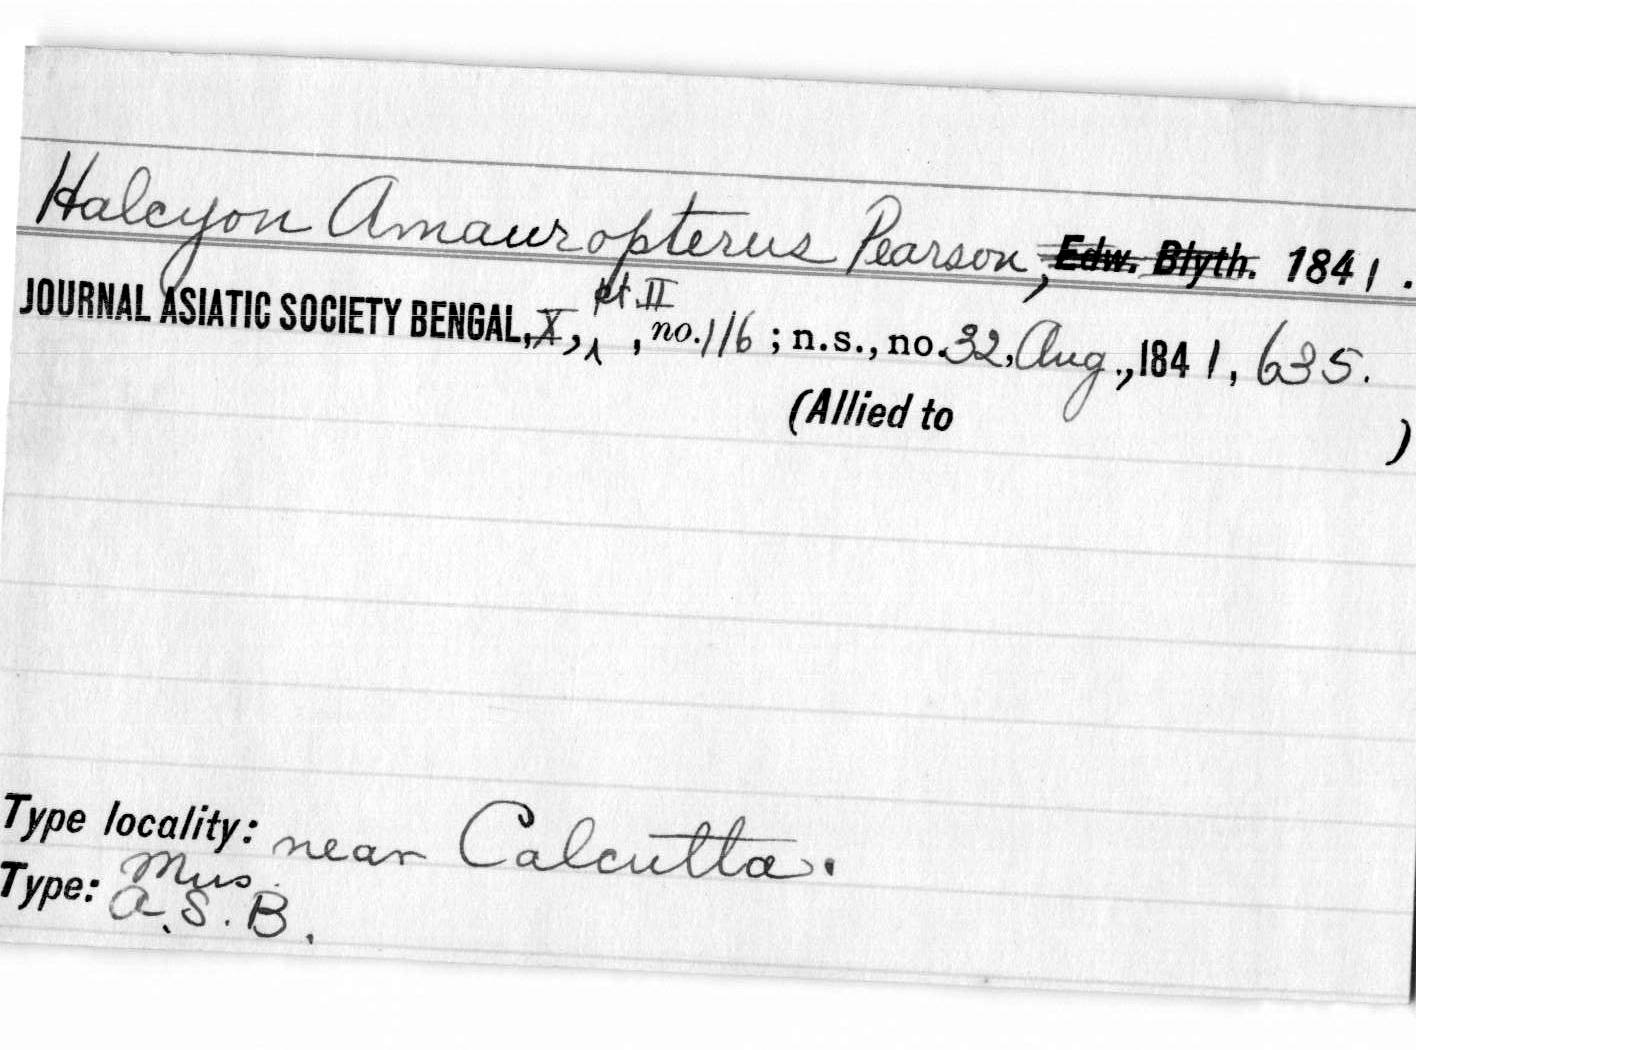 Halcyon Amauropterus Pearson, Edw. Blyth. 1841.
pt. II
JOURNAL ASIATIC SOCIETY BENGAL, X, ‸, no. 116; n.s., no. 32, Aug., 1841, 635.
(Allied to )
Type locality: near Calcutta.
Type: Mus.
A.S.B.